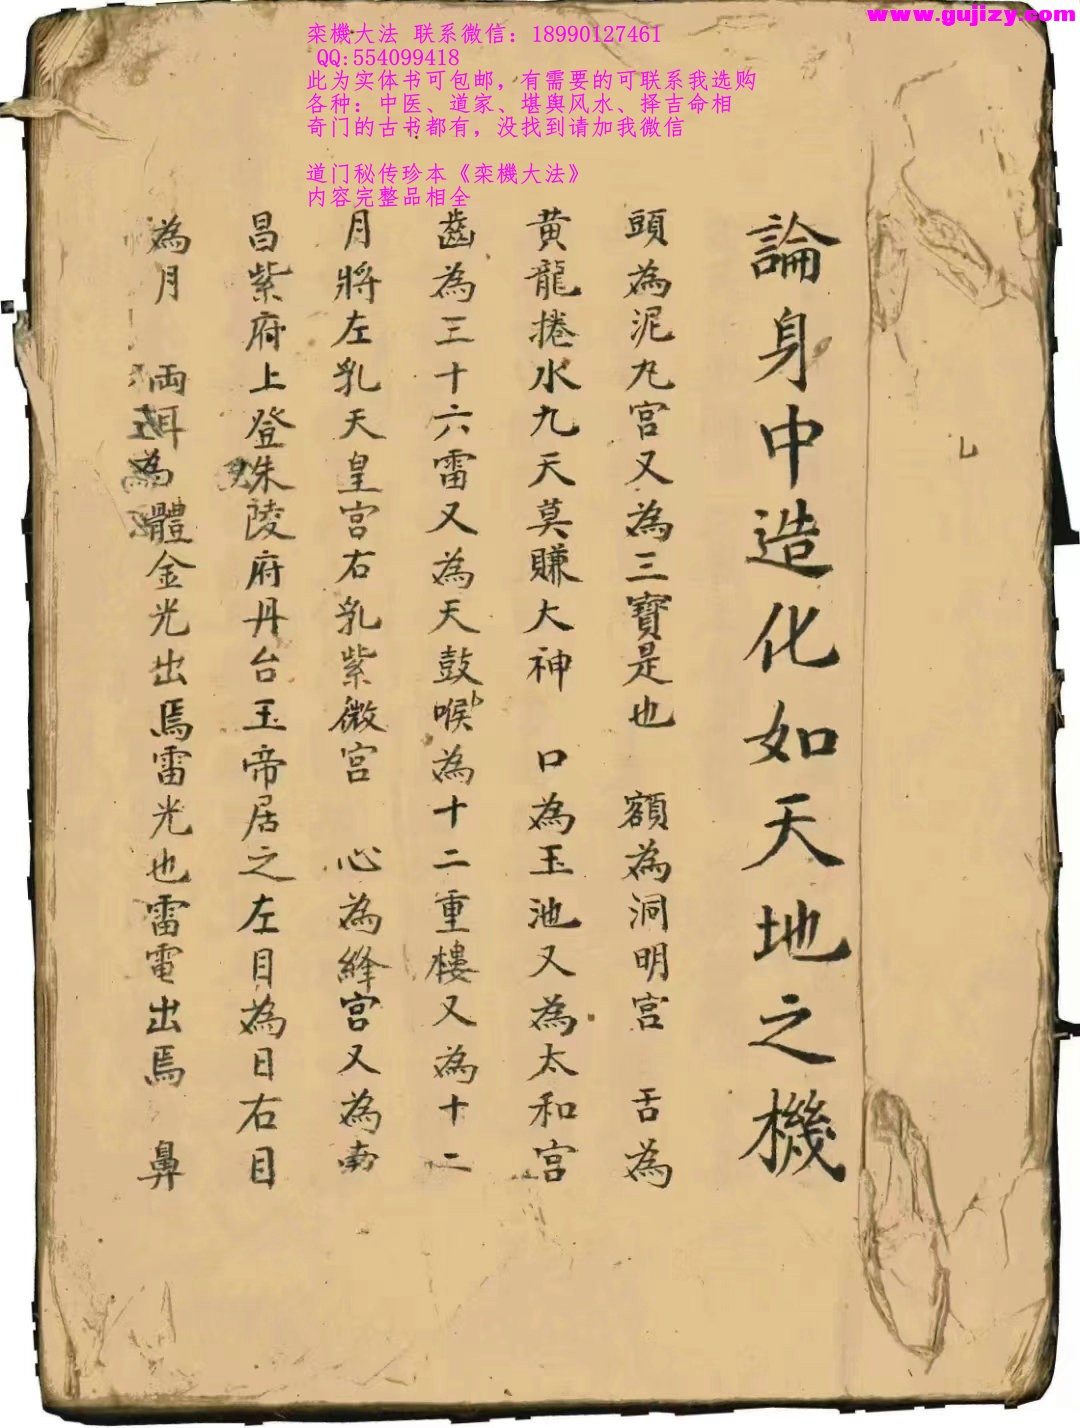 www.gujizy.com
栾機大法 联系微信：18990127461
QQ:554099418
此为实体书可包邮，有需要的可联系我选购
各种：中医、道家、堪舆风水、择吉命相
奇门的古书都有，没找到请加我微信
道门秘传珍本《栾機大法》
内容完整品相全
論身中造化如天地之機
頭為泥九宮又為三寶是也 額為洞明宮 舌為
黄龍捲水九天莫賺大神 口為玉池又為太和宮
齒為三十六雷又為天鼓喉為十二重樓又為十二
月將左乳天皇宮右乳紫微宮 心為絳宮又為南
昌紫府上登朱陵府丹台玉帝居之左目為日右目
為月 両耳為體金光出焉雷光也雷電出焉 鼻